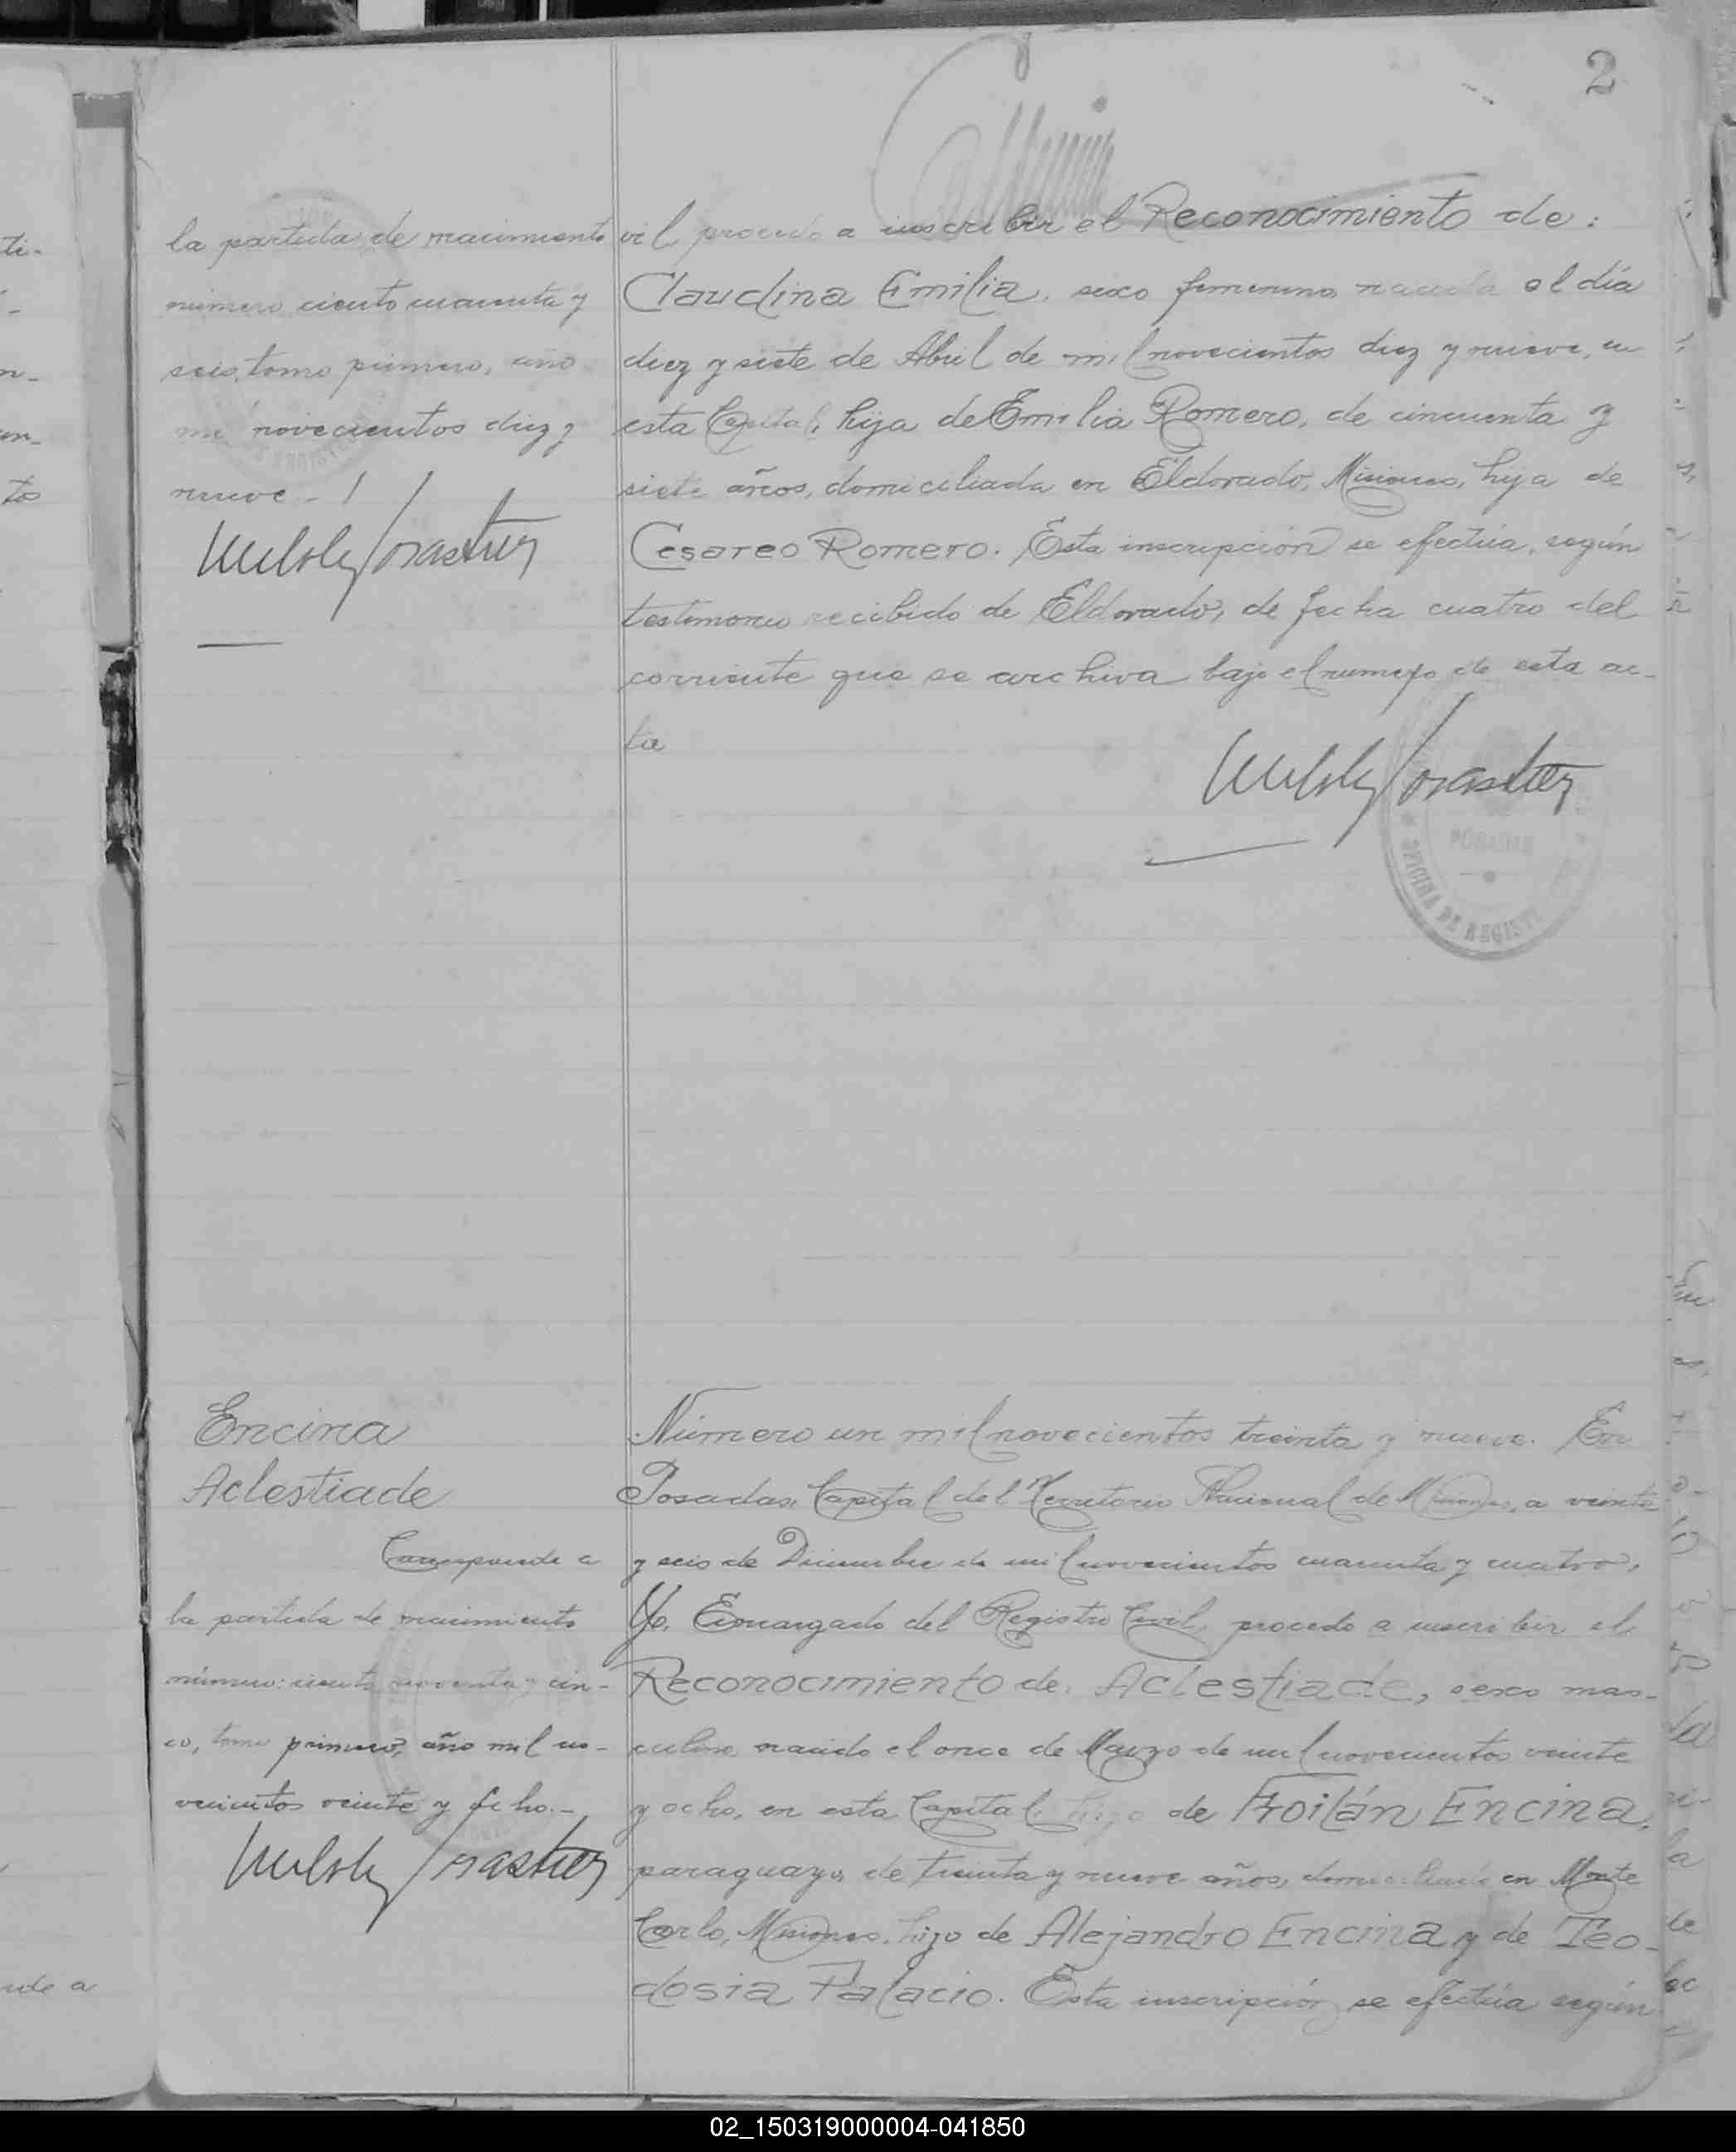 2
la partida de nacimiento
número ciento cuarenta y
seis, tomo primero, año
mil novecientos diez y
nueve -
vil, procedo a inscribir el Reconocimiento de:
Claudina Emilia, sexo femenino, nacida el día
diez y siete de Abril de mil novecientos diez y nueve, en
esta Capital, hija de Emilia Romero, de cincuenta y
siete años, domiciliada en Eldorado, Misiones, hija de
Cesareo Romero. Esta inscripción se efectúa, según
testimonio recibido de Eldorado, de fecha cuatro del
corriente que se archiva bajo el numero de esta ac-
ta
POSADAS
OFICINA DE REGIST
Encina
Aclestiade
Corresponde a
la partida de nacimiento
número: ciento noventa y cin-
co, tomo primero, año mil no-
vecientos veinte y ocho.-
Número un mil novecientos treinta y nueve. En
Posadas, Capital del Territorio Nacional de Misiones, a veinte
y seis de Diciembre de mil novecientos cuarenta y cuatro.
Yo, Encargado del Registro Civil, procedo a inscribir el
Reconocimiento de: Aclestiade, sexo mas-
culino, nacido el once de Marzo de mil novecientos veinte
y ocho, en esta Capital, hijo de Froilán Encina,
paraguayo, de treinta y nueve años, domiciliado en Monte
Carlo, Misiones, hijo de Alejandro Encina y de Teo-
dosia Palacio. Esta inscripción se efectúa según
02_150319000004-041850